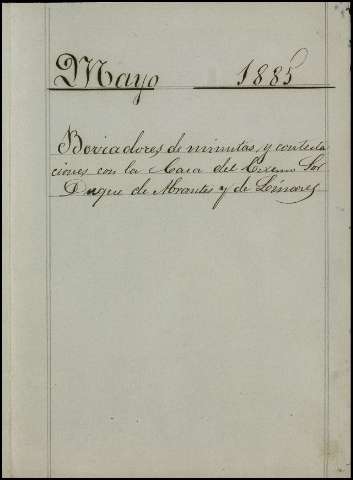 Mayo 1885
Borradores de minutas, y contesta
ciones con la Casa del Excmo Sor
Duque de Abrantes y de Linares